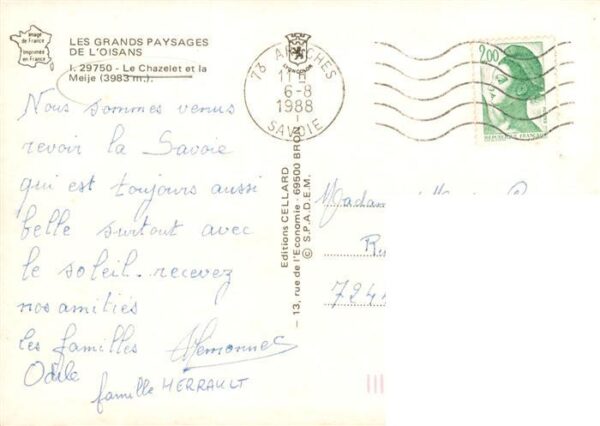 Image
de France
Imprimée
en France
LES GRANDS PAYSAGES
DE L'OISANS
I. 29750 - Le Chazelet et la
Meije (3983 m.).
73 ARÊCHES
11 H
6-8
1988
SAVOIE
2,00
Nous sommes venus
revoir la Savoie
qui est toujours aussi
belle surtout avec
le soleil. recevez
nos amitiés
les familles
Odile
famille HERRAULT
Editions CELLARD
— 13, rue de l'Economie - 69500 BRON —
© S.P.A.D.E.M.
Madam
Ru
724